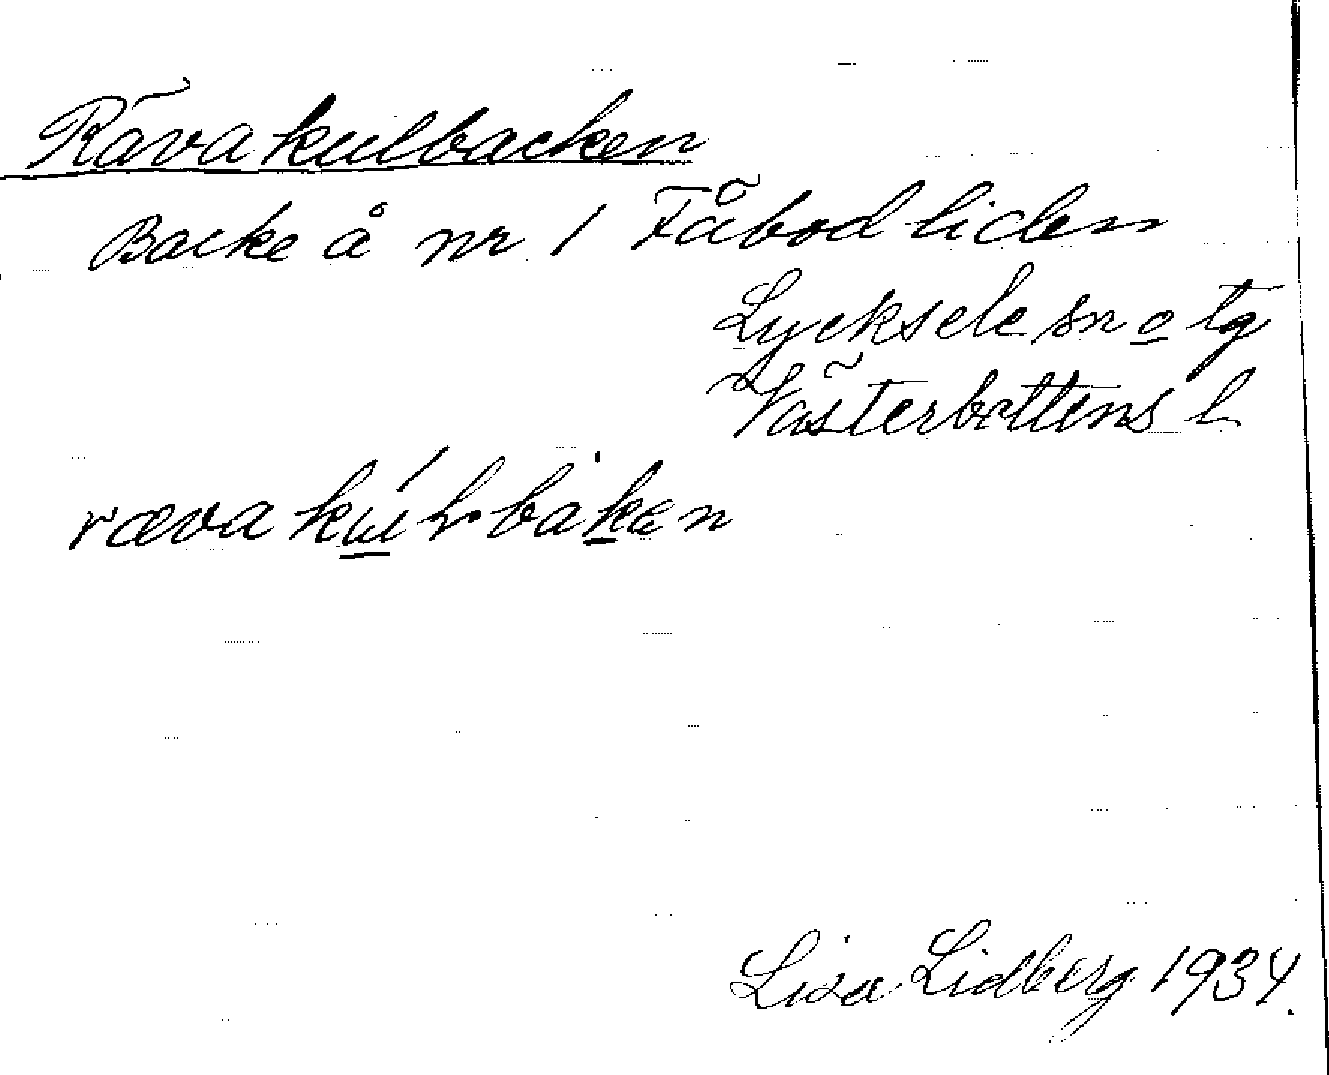 Rävakulbacken
Backe å nr 1 Fäbodliden
Lycksele sn o tg
Västerbottens l
Lisa Lidberg 1934.